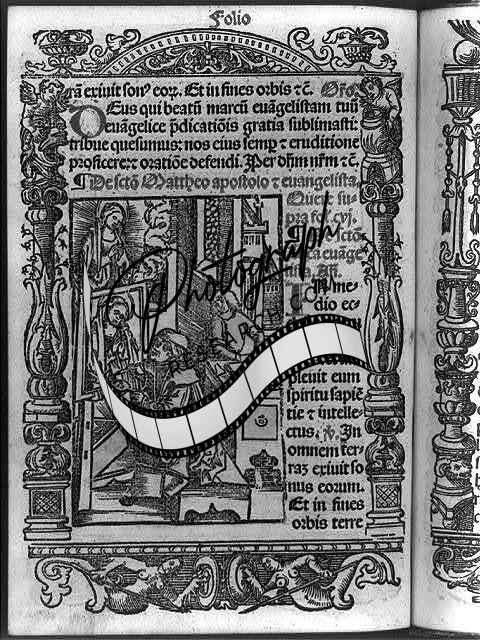 Folio
rā exiuit sonꝰ eoꝝ. Et in fines orbis ⁊ c̄. Ořo.
Deus qui beatū marcū euāgelistam tuū
euāgelice p̄dicatiōis gratia sublimasti:
tribue quesumus: nos eius semp̱ ⁊ eruditione
proficere: ⁊ oratiōe defendi. Per dn̄m nr̄m ⁊ c̄.
¶ De sctō Mattheo apostolo ⁊ euangelista.
su-
Photograph
me-
dio ec-
RESEARCH
pleuit eum
spiritu sapiē
tie ⁊ intelle-
ctus. ℣. In
omnem ter-
raꝫ exiuit so
nus eorum.
Et in fines
orbis terre